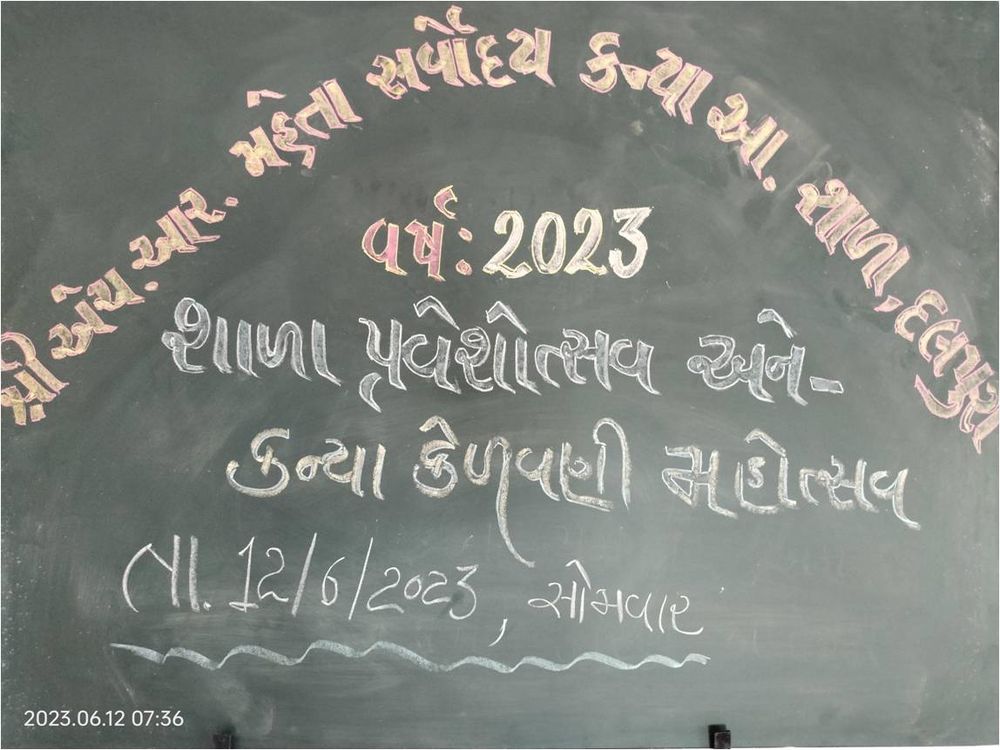 શ્રી એચ. આર. મહેતા સર્વોદય કન્યા આ. શાળા, દલપુરા
વર્ષ: 2023
શાળા પ્રવેશોત્સવ અને-
કન્યા કેળવણી મહોત્સવ
તા. 12/6/2023, સોમવાર
2023.06.12 07:36